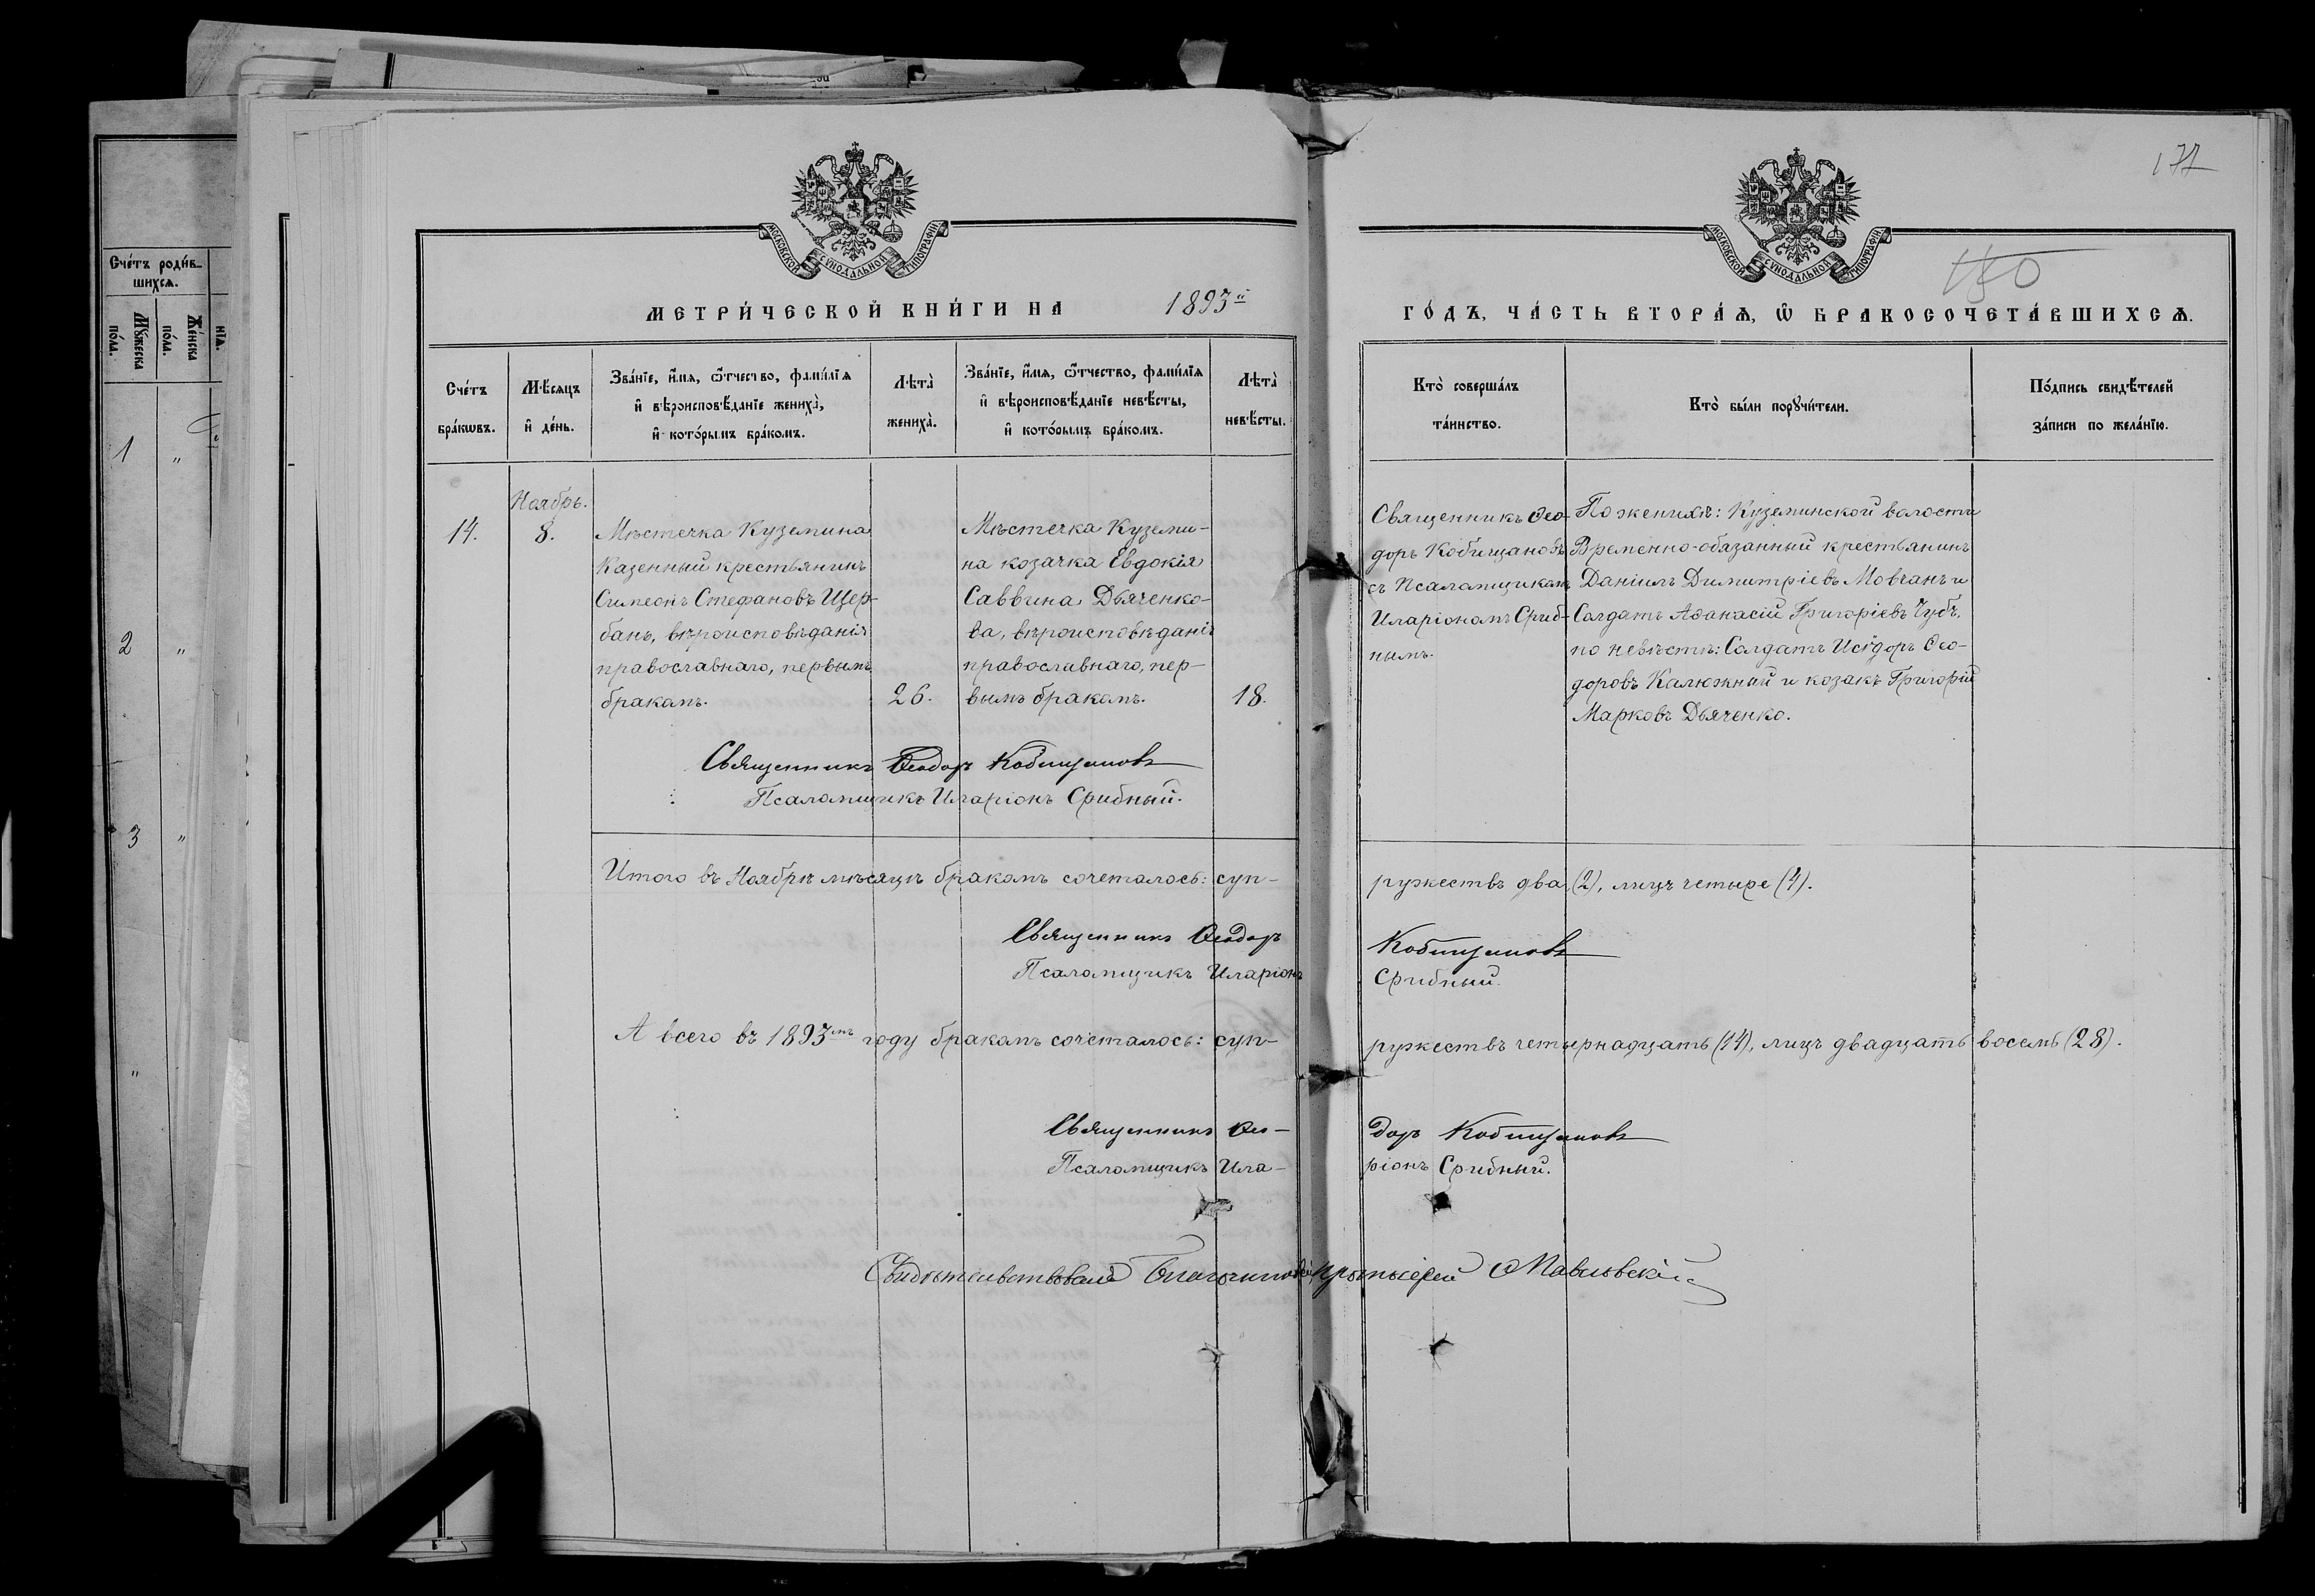 172
180
МОСКОВСКОЙ СѴНОДАЛЬНОЙ ТИПОГРАФІИ
МОСКОВСКОЙ СѴНОДАЛЬНОЙ ТИПОГРАФІИ
МЕТРИ́ЧЕСКОЙ КНИ́ГИ НА 1893й ГО́ДЪ, ЧА́СТЬ ВТОРА́Я, Ѡ БРАКОСОЧЕТА́ВШИХСЯ.
Сче́тъ роди́в-
шихся.
Му́жеска по́ла.
Же́нска по́ла.
1 "
2 "
3 "
"
Сче́тъ
бра́кѡвъ.
Мѣ́сяцъ
и де́нь.
Зва́ніе, и́мя, ѻ́тчество, фами́лія
и вѣроисповѣ́даніе жениха̀,
и кото́рымъ бра́комъ.
Лѣта̀
жениха̀.
Зва́ніе, и́мя, ѻ́тчество, фами́лія
и вѣроисповѣ́даніе невѣ́сты,
и кото́рымъ бра́комъ.
Лѣта̀
невѣ́сты.
Кто̀ соверша́лъ
та́инство.
Кто̀ бы́ли поручи́тели.
По́дпись свидѣ́телей
за́писи по жела́нію.
14.
Ноябрь.
8.
Мѣстечка Куземина
Казенный крестьянинъ
Симеонъ Стефановъ Щер-
банъ, вѣроисповѣданія
православнаго, первымъ
бракомъ.
26.
Мѣстечка Куземи-
на козачка Евдокія
Саввина Дьяченко-
ва, вѣроисповѣданія
православнаго, пер-
вымъ бракомъ.
18.
Священникъ Ѳео-
доръ Кобищановъ
съ Псаломщикомъ
Иларіономъ Сриб-
нымъ.
По женихѣ: Куземинской волости
Временно-обязанный крестьянинъ
Даніилъ Димитріевъ Мовчанъ и
Солдатъ Аѳанасій Григоріевъ Чубъ,
по невѣстѣ: Солдатъ Исидоръ Ѳео-
доровъ Калюжный и козакъ Григорій
Марковъ Дьяченко.
Священникъ Ѳеодоръ Кобищановъ
Псаломщикъ Иларіонъ Срибный.
Итого въ Ноябрѣ мѣсяцѣ бракомъ сочеталось: суп-
ружествъ два (2), лицъ четыре (4).
Священникъ Ѳеодоръ Кобищановъ
Псаломщикъ Иларіонъ Срибный.
А всего въ 1893мъ году бракомъ сочеталось: суп-
ружествъ четырнадцать (14), лицъ двадцать восемь (28).
Священникъ Ѳео- доръ Кобищановъ
Псаломщикъ Ила- ріонъ Срибный.
Свидѣтельствовалъ Благочинный, протоіерей